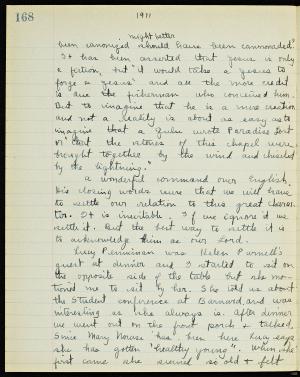 168
1911
might better
been canonized should have been cannonaded."
"It has been asserted that Jesus is only
a fiction, but "it would take a Jesus to
forge a Jesus" and all the more credit
is due the fisherman who conceived him.
But to imagine that he is a mere creation
and not a reality is about as easy as to
imagine that a wrote Paradise Lost
or that the stones of this chapel were
brought together by the wind and chiseled
by the lightning."
a wonderful command our English.
His closing words were that we will have
to settle our relation to this great charac-
ter. It is inevitable. If we ignore it we
settle it. But the best way to settle it is
to acknowledge Him as our Lord.
Lucy Penniman was Helen Parnell's
guest at dinner and I started to sit on
the opposite side of the table but she mo-
tioned me to sit by her. She told us about
the Student conference at Barnard, and was
interesting as she always is. After dinner
we went out on the front porch & talked.
Since Mary Morass has been here Lucy says
she has gotten "healthy young". When she
first came she seemed so old & felt